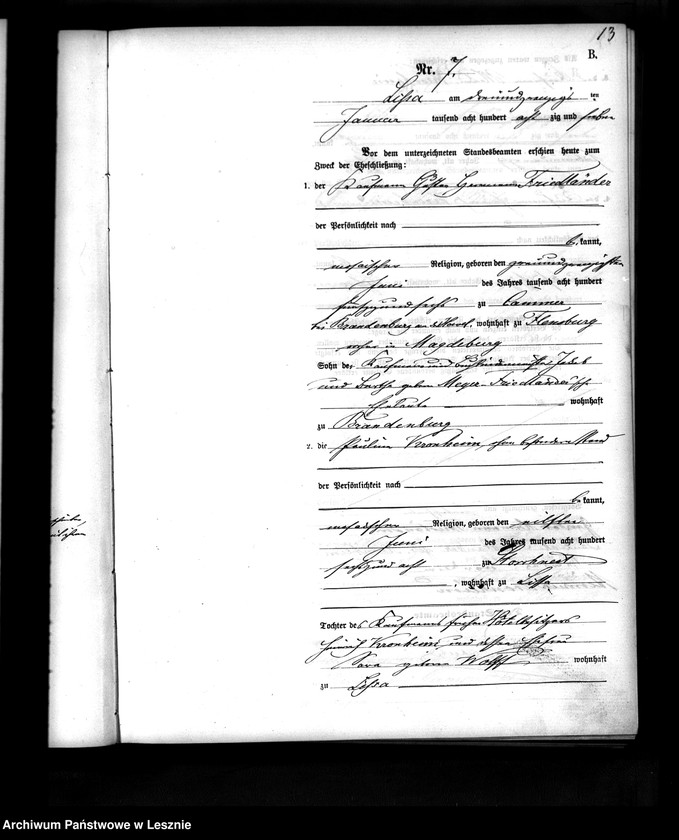 13
B.
Nr. 7.
Lissa am dreiundzwanzigsten
Januar tausend acht hundert acht zig und sieben
Vor dem unterzeichneten Standesbeamten erschien heute zum
Zweck der Eheschließung:
1. der Kaufmann Hermann Friedländer
der Persönlichkeit nach
be kannt,
mosaischer Religion, geboren den zweiundzwanzigsten
Juni des Jahres tausend acht hundert
fünfzig und sechs zu Cammer
bei Brandenburg a. d. Havel, wohnhaft zu Flensburg
vorher in Magdeburg
Sohn des Kaufmanns und Jakob
und geborene Meyer-Friedländer'schen
Eheleute wohnhaft
zu Brandenburg
2. die Pauline Kronheim, ohne besonderen Stand
der Persönlichkeit nach
be kannt,
mosaischer Religion, geboren den elften
Juni des Jahres tausend acht hundert
sechzig und acht zu Storchnest
, wohnhaft zu Lissa
Tochter des Kaufmanns früher Hotelbesitzers
Heinrich Kronheim und dessen Ehefrau
Sara geborene Wolff wohnhaft
zu Lissa
Archiwum Państwowe w Lesznie